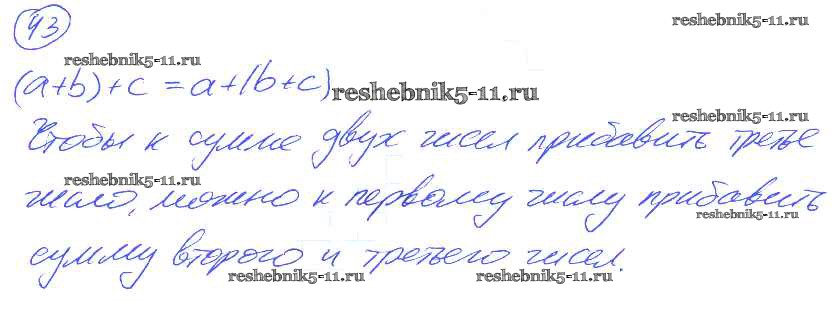 43
reshebnik5-11.ru
reshebnik5-11.ru
(a+b)+c=a+(b+c)
reshebnik5-11.ru
reshebnik5-11.ru
Чтобы к сумме двух чисел прибавить третье
reshebnik5-11.ru
число, можно к первому числу прибавить
reshebnik5-11.ru
сумму второго и третьего чисел.
reshebnik5-11.ru
reshebnik5-11.ru